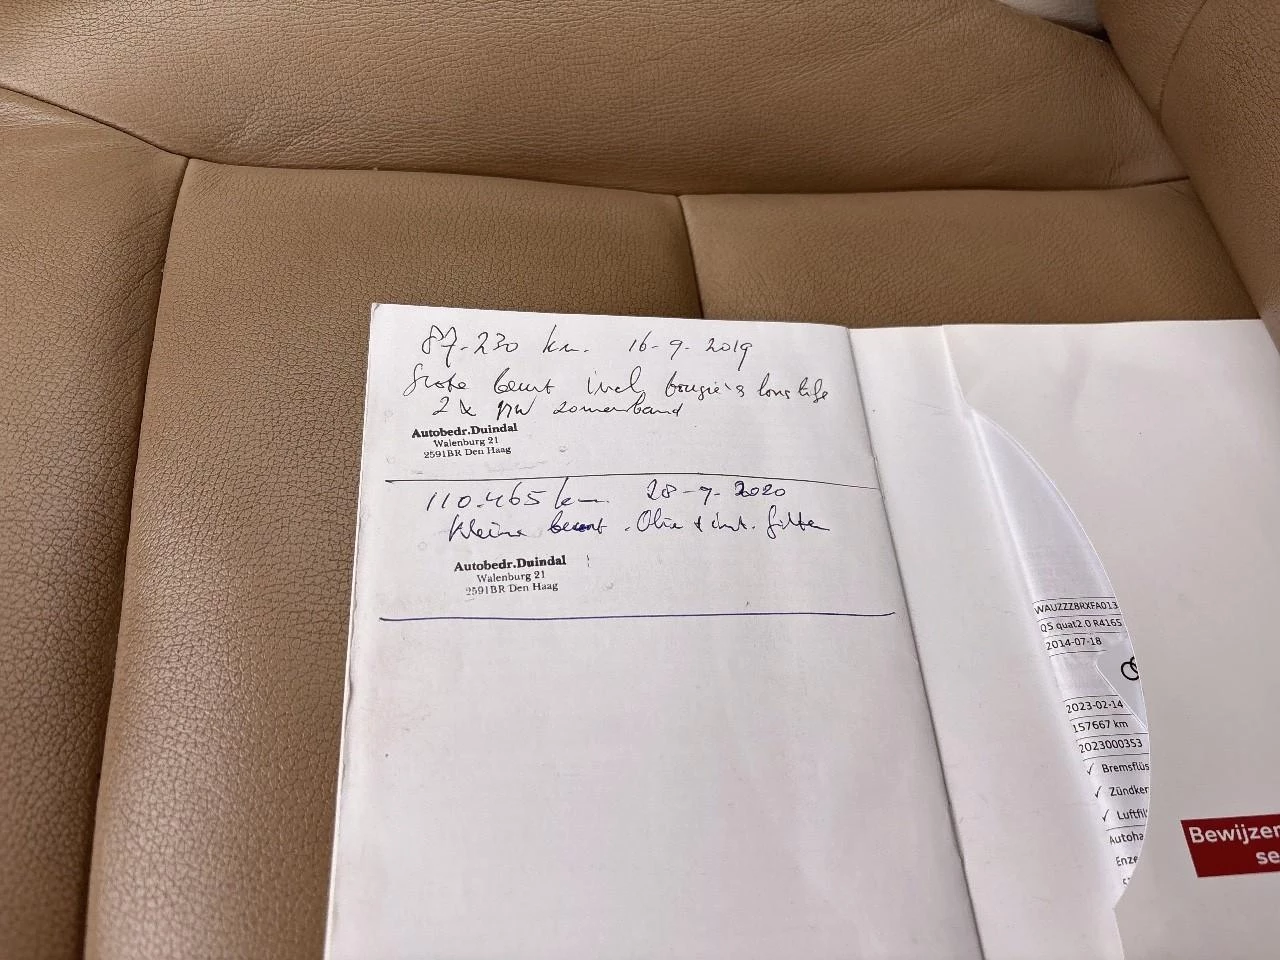 87.230 km. 16-9-2019
Grote beurt incl bougie's longlife
2 x nw zomerband
Autobedr.Duindal
Walenburg 21
2591BR Den Haag
110.465 km. 28-9-2020
Kleine beurt. Olie + int. filter
Autobedr.Duindal
Walenburg 21
2591BR Den Haag
WAUZZZ8RXFA013
Q5 quat2.0 R4165
2014-07-18
2023-02-14
157667 km
2023000353
✓ Bremsflüs
✓ Zündker
✓ Luftfil
Autoha
Enze
Bewijzen
se